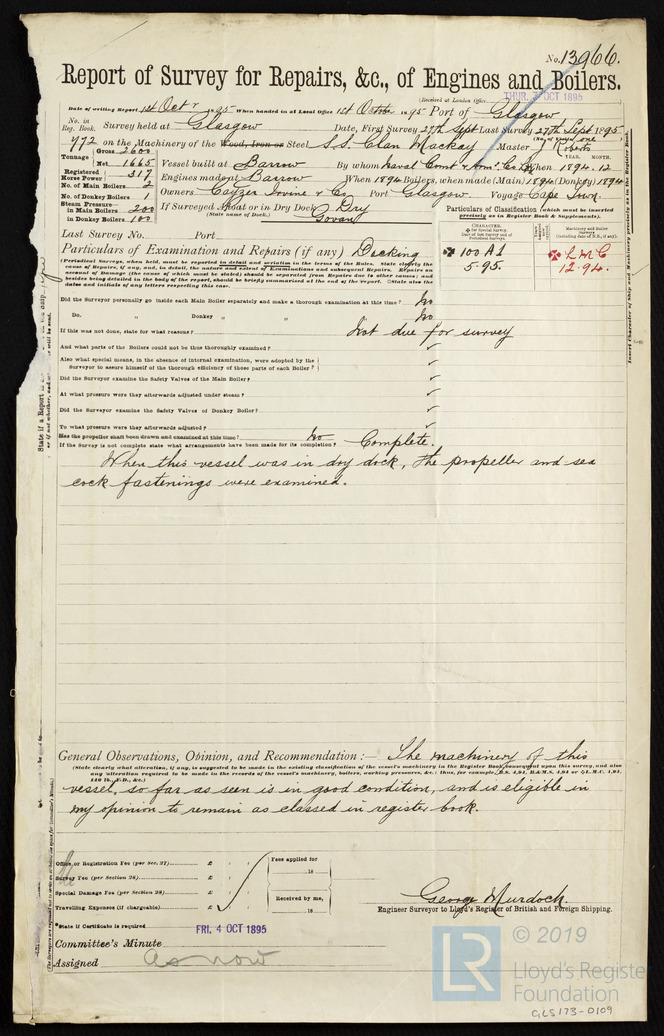 No. 13966.
Report of Survey for Repairs, &c., of Engines and Boilers.
(Received at London Office THUR. 3 OCT 1895
Date of writing Report 1st Octr 1895 When handed in at Local Office 1st October 1895 Port of Glasgow
No. in Reg. Book. Survey held at Glasgow Date, First Survey 27th Sept Last Survey 27th Sept 1895
(No. of Visits one
772 on the Machinery of the Wood, Iron or Steel S.S. Clan Mackay Master Roberts
Tonnage Gross 2600
Net 1665
Vessel built at Barrow By whom Naval Const & Arms Co. Ld When 1894. 12
YEAR. MONTH.
Registered Horse Power 317
Engines made at Barrow When 1894 Boilers, when made (Main) 1894 (Donkey) 1894
No. of Main Boilers 2
No. of Donkey Boilers 1
Owners Cayzer Irvine & Co Port Glasgow Voyage Cape Town
Steam Pressure in Main Boilers 200
in Donkey Boilers 100
If Surveyed Afloat or in Dry Dock Dry
(State name of Dock.) Govan
Particulars of Classification (which must be inserted precisely as in Register Book & Supplements).
Last Survey No. Port
CHARACTER.
for Special Survey.
Date of last Survey and of Periodical Surveys.
Machinery and Boiler Surveys
(including date of N.B., if any).
100 A1
5.95.
L M C
12.94.
Particulars of Examination and Repairs (if any) Docking
(Periodical Surveys, when held, must be reported in detail and seriatim in the terms of the Rules. State clearly the
cause of Repairs, if any, and, in detail, the nature and extent of Examinations and subsequent Repairs. Repairs on
account of Damage (the cause of which must be stated) should be separated from Repairs due to other causes; and
besides being detailed in the body of the report, should be briefly summarized at the end of the report. State also the
dates and initials of any letters respecting this case.
Did the Surveyor personally go inside each Main Boiler separately and make a thorough examination at this time? No
Do. " Donkey " " No
If this was not done, state for what reasons? Not due for survey
And what parts of the Boilers could not be thus thoroughly examined?
Also what special means, in the absence of internal examination, were adopted by the
Surveyor to assure himself of the thorough efficiency of those parts of each Boiler?
Did the Surveyor examine the Safety Valves of the Main Boiler?
At what pressure were they afterwards adjusted under steam?
Did the Surveyor examine the Safety Valves of Donkey Boiler?
To what pressure were they afterwards adjusted?
Has the propeller shaft been drawn and examined at this time? No
If the Survey is not complete state what arrangements have been made for its completion? Complete.
When this vessel was in dry dock, the propeller and sea
cock fastenings were examined.
General Observations, Opinion, and Recommendation:— The machinery of this
(State clearly what alteration, if any, is suggested to be made in the existing classification of the vessel's machinery in the Register Book, consequent upon this survey, and also
any alteration required to be made in the records of the vessel's machinery, boilers, working pressures, &c.: thus, for example, B.S. 4,94, B.&M.S. 4,94 or L.M.C. 4,94,
140 lb., F.D., &c.)
vessel, so far as seen is in good condition, and is eligible in
my opinion to remain as classed in register book.
Office or Registration Fee (per Sec. 27) £
Survey Fee (per Section 28) £
Special Damage Fee (per Section 28) £
Travelling Expenses (if chargeable) £
Fees applied for
18
Received by me,
18
George Murdoch
Engineer Surveyor to Lloyd's Register of British and Foreign Shipping.
State if Certificate is required
FRI. 4 OCT 1895
Committee's Minute
Assigned As now
LR
© 2019
Lloyd's Register
Foundation
GLS173-0109